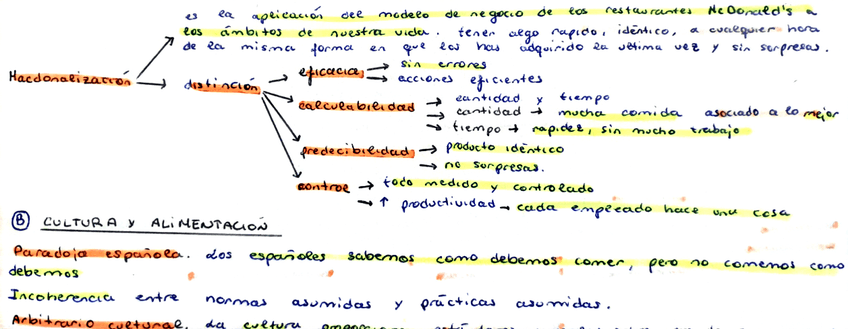 es la aplicación del modelo de negocio de los restaurantes McDonald's a
los ámbitos de nuestra vida. tener algo rapido, idéntico, a cualquier hora
de la misma forma en que los has adquirido la ultima vez y sin sorpresas.
Macdonalización → distinción → eficacia → sin errores
→ acciones eficientes
calculabilidad → cantidad y tiempo
→ cantidad → mucha comida asociado a lo mejor
→ tiempo → rapidez, sin mucho trabajo
predecibilidad → producto idéntico
→ no sorpresas.
control → todo medido y controlado
→ ↑ productividad → cada empleado hace una cosa
B CULTURA Y ALIMENTACIÓN
Paradoja española. Los españoles sabemos como debemos comer, pero no comemos como
debemos
Incoherencia entre normas asumidas y prácticas asumidas.
Arbitrario cultural. La cultura